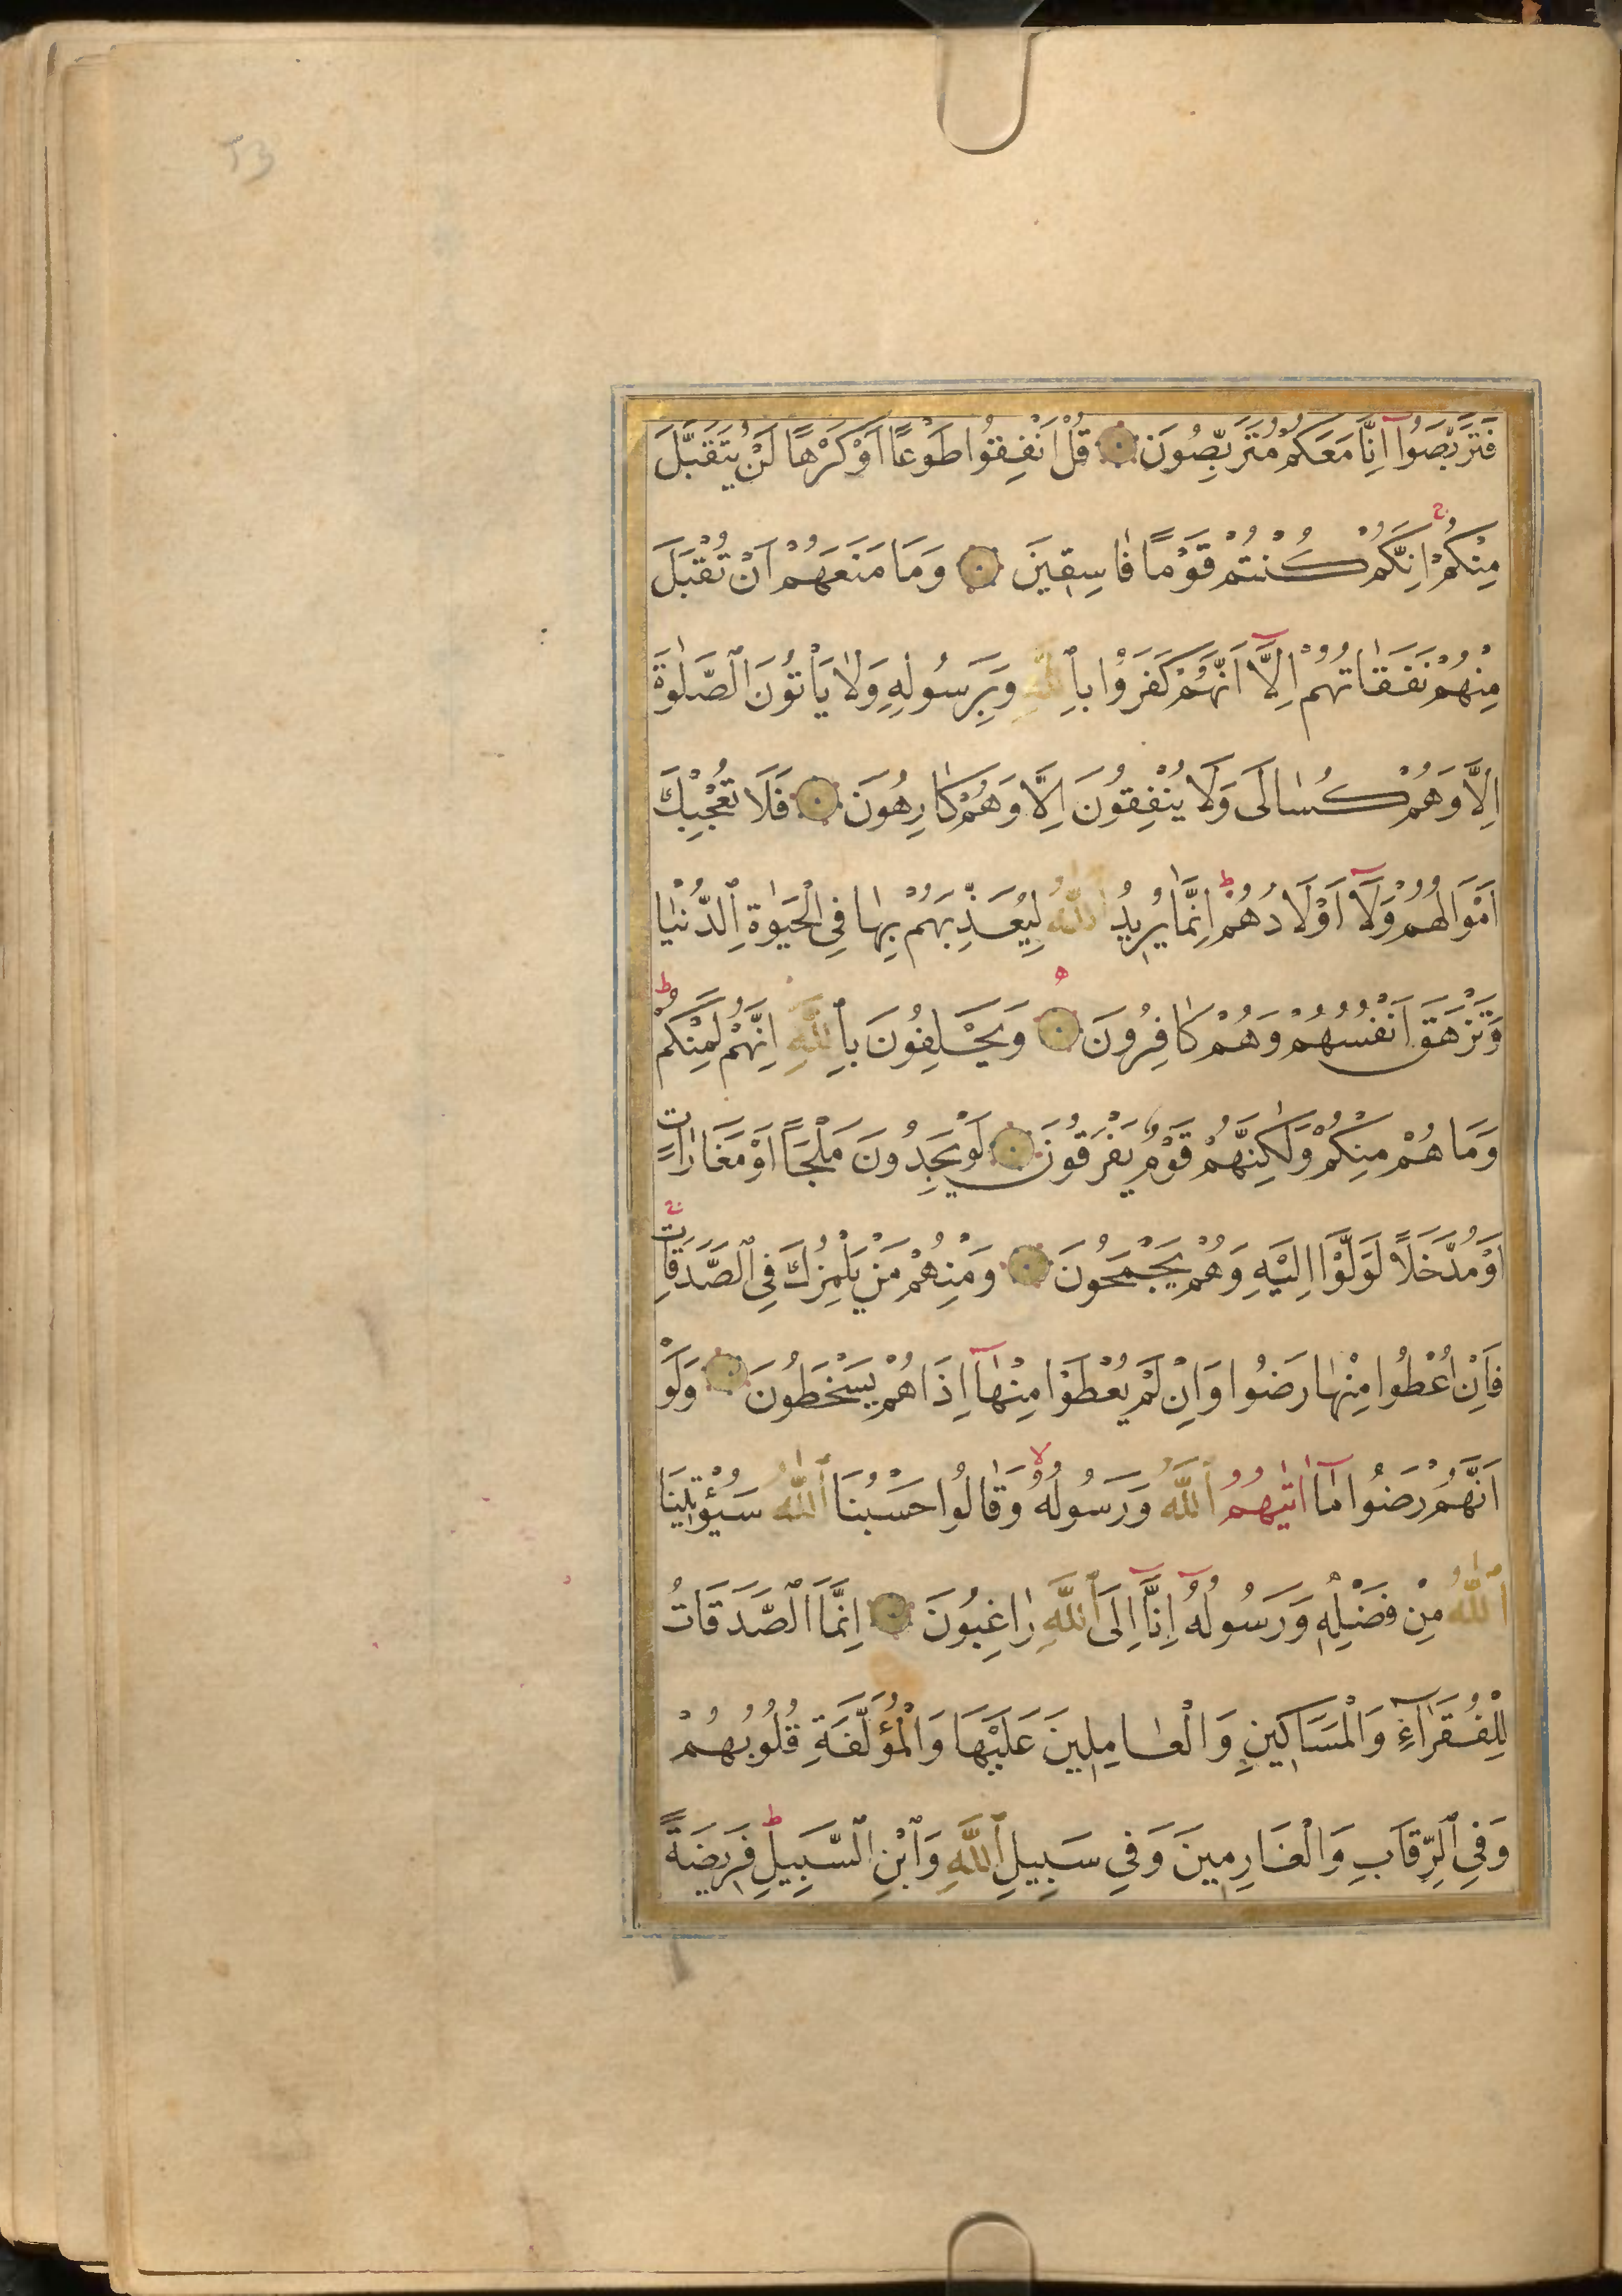 فَتَرَبَّصُوا اِنَّا مَعَكُمْ مُتَرَبِّصُونَ ۝ قُلْ اَنْفِقُوا طَوْعًا اَوْ كَرْهًا لَنْ يُتَقَبَّلَ
مِنْكُمْ اِنَّكُمْ كُنْتُمْ قَوْمًا فَاسِقِينَ ۝ وَمَا مَنَعَهُمْ اَنْ تُقْبَلَ
مِنْهُمْ نَفَقَاتُهُمْ اِلَّا اَنَّهُمْ كَفَرُوا بِاللّٰهِ وَبِرَسُولِهِ وَلَا يَأْتُونَ الصَّلٰوةَ
اِلَّا وَهُمْ كُسَالَى وَلَا يُنْفِقُونَ اِلَّا وَهُمْ كَارِهُونَ ۝ فَلَا تُعْجِبْكَ
اَمْوَالُهُمْ وَلَا اَوْلَادُهُمْ ط اِنَّمَا يُرِيدُ اللّٰهُ لِيُعَذِّبَهُمْ بِهَا فِي الْحَيٰوةِ الدُّنْيَا
وَتَزْهَقَ اَنْفُسُهُمْ وَهُمْ كَافِرُونَ ۝ وَيَحْلِفُونَ بِاللّٰهِ اِنَّهُمْ لَمِنْكُمْ ط
وَمَا هُمْ مِنْكُمْ وَلٰكِنَّهُمْ قَوْمٌ يَفْرَقُونَ ۝ لَوْ يَجِدُونَ مَلْجَأً اَوْ مَغَارَاتٍ
اَوْ مُدَّخَلًا لَوَلَّوْا اِلَيْهِ وَهُمْ يَجْمَحُونَ ۝ وَمِنْهُمْ مَنْ يَلْمِزُكَ فِي الصَّدَقَاتِ
فَاِنْ اُعْطُوا مِنْهَا رَضُوا وَاِنْ لَمْ يُعْطَوْا مِنْهَا اِذَا هُمْ يَسْخَطُونَ ۝ وَلَوْ
اَنَّهُمْ رَضُوا مَا اٰتٰيهُمُ اللّٰهُ وَرَسُولُهُ لا وَقَالُوا حَسْبُنَا اللّٰهُ سَيُؤْتِينَا
اللّٰهُ مِنْ فَضْلِهِ وَرَسُولُهُ اِنَّا اِلَى اللّٰهِ رَاغِبُونَ ۝ اِنَّمَا الصَّدَقَاتُ
لِلْفُقَرَاءِ وَالْمَسَاكِينِ وَالْعَامِلِينَ عَلَيْهَا وَالْمُؤَلَّفَةِ قُلُوبُهُمْ
وَفِي الرِّقَابِ وَالْغَارِمِينَ وَفِي سَبِيلِ اللّٰهِ وَابْنِ السَّبِيلِ ط فَرِيضَةً